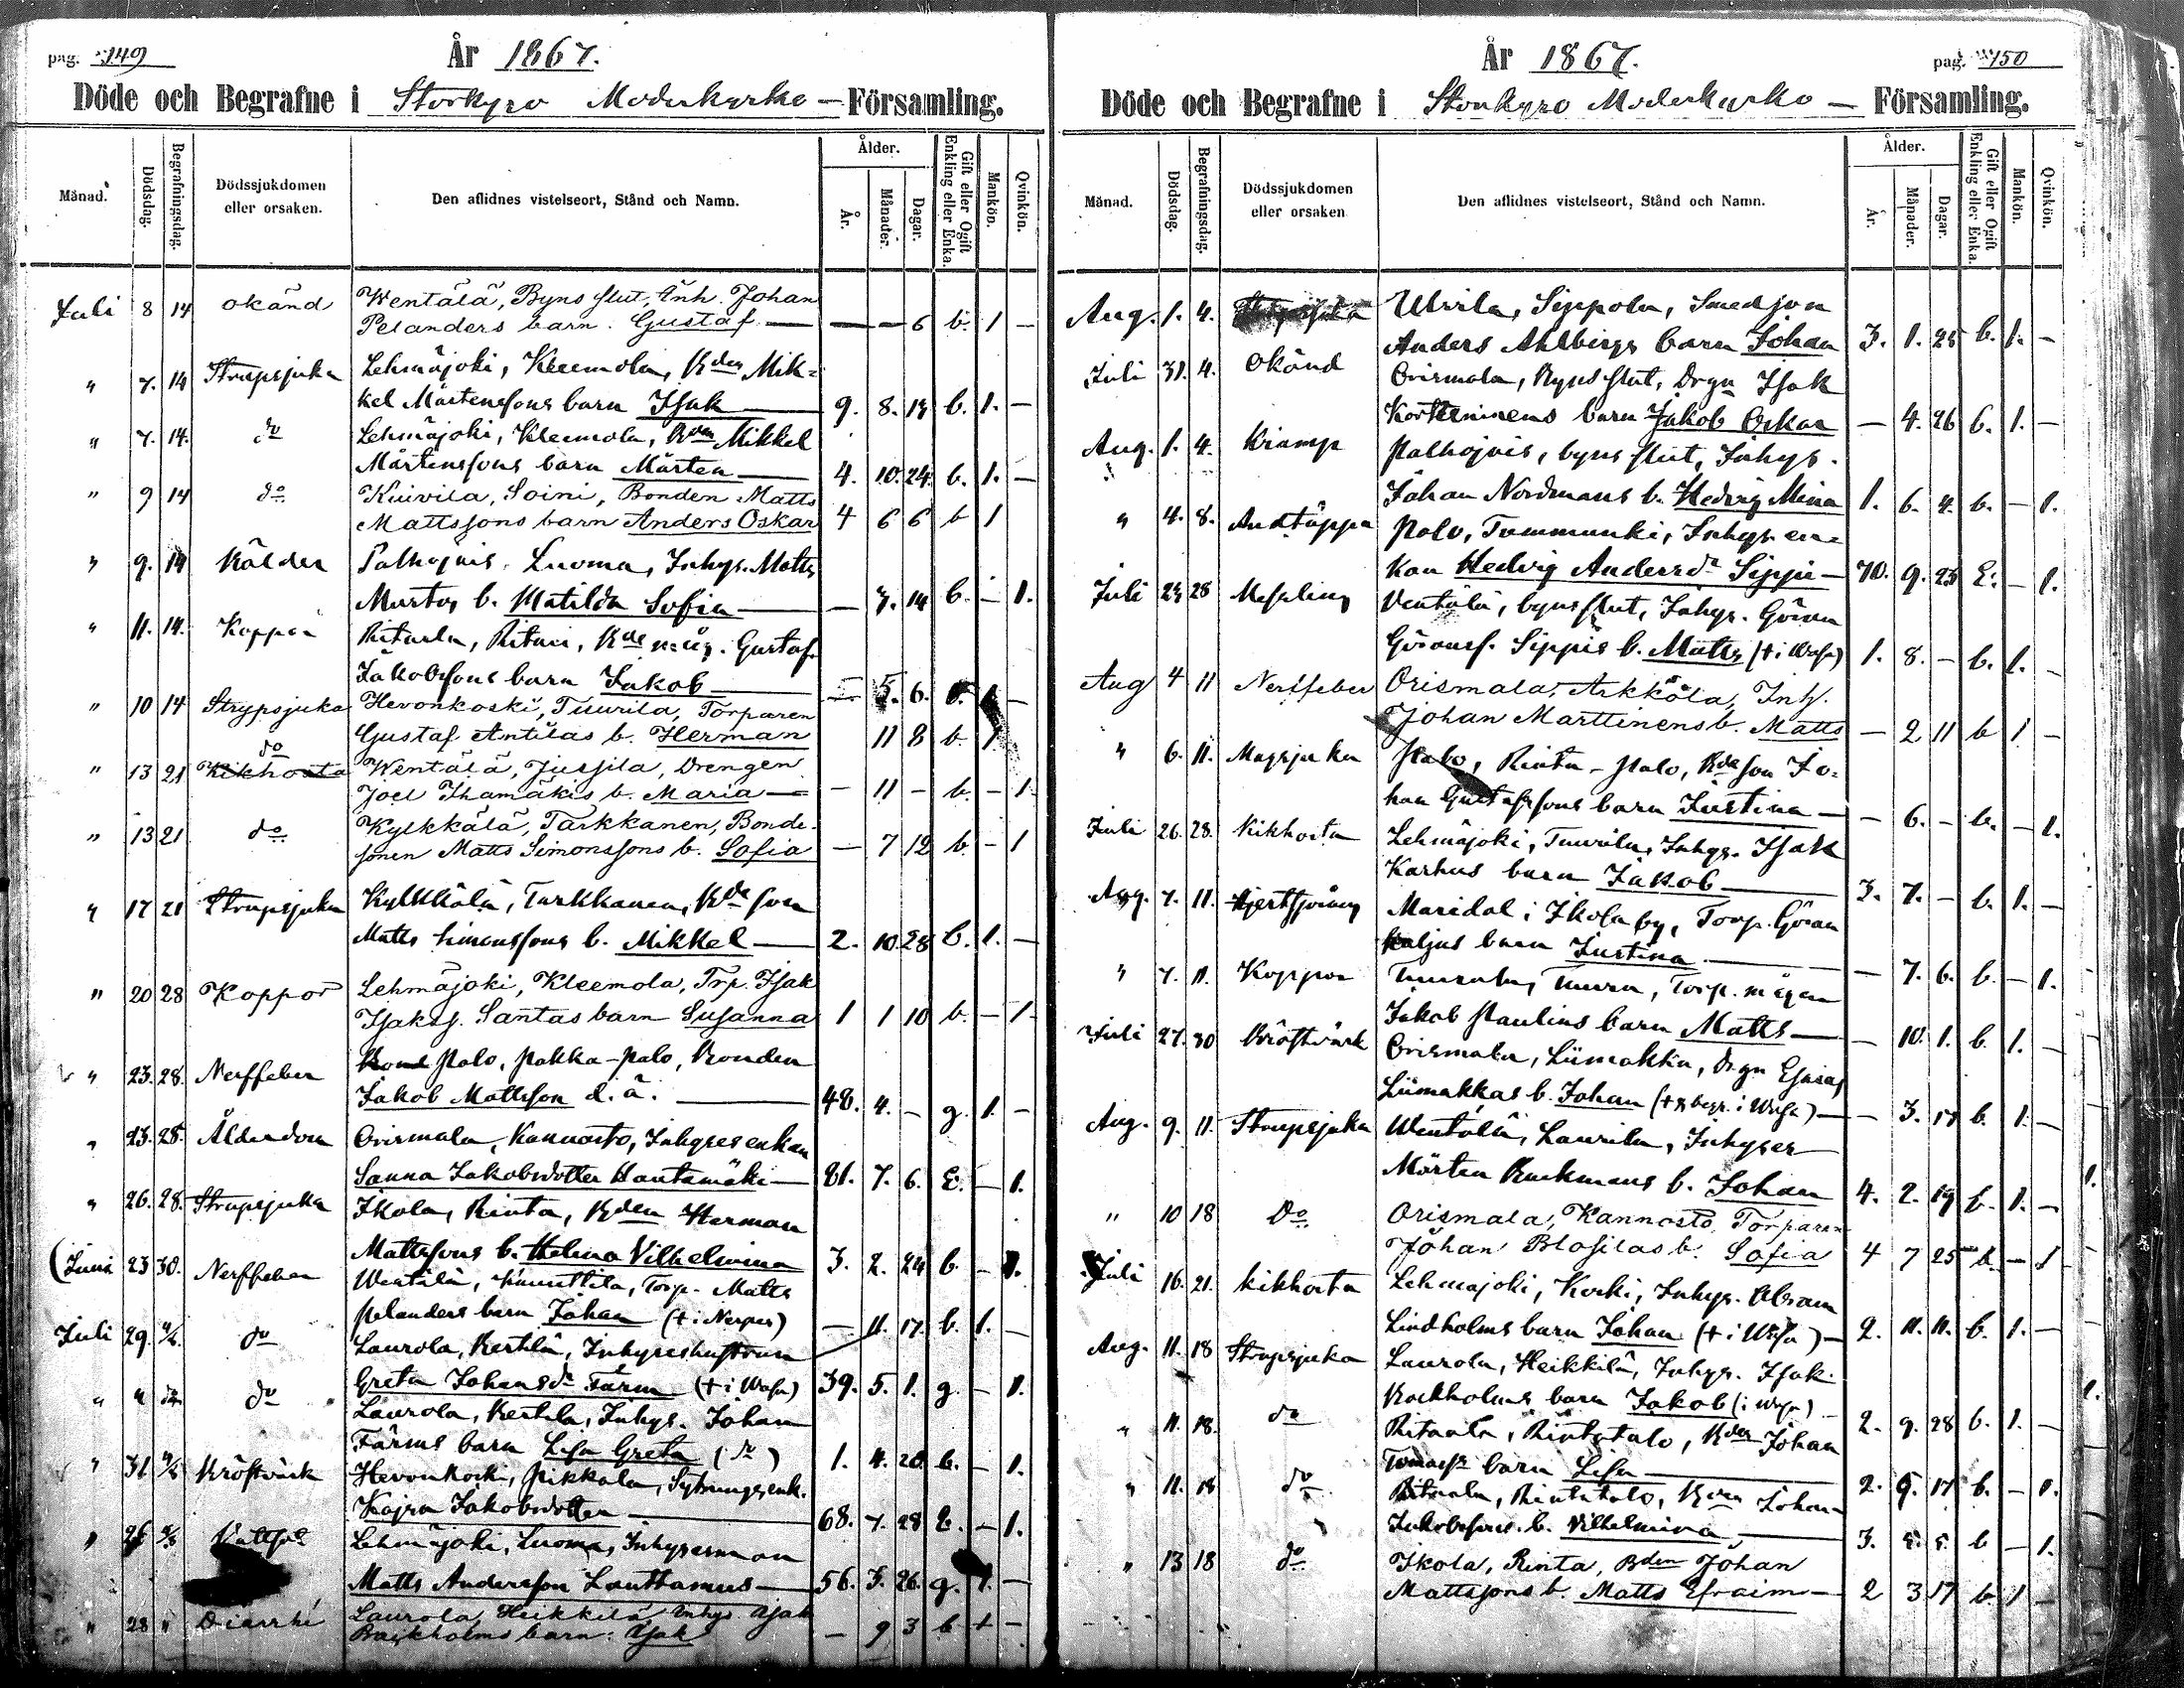 pag. 149
År 1867.
Döde och Begrafne i Storkyro Moderkyrko - Församling.
Månad.
Dödsdag.
Begrafningsdag.
Dödssjukdomen eller orsaken.
Den aflidnes vistelseort, Stånd och Namn.
Ålder.
År.
Månader.
Dagar.
Gift eller Ogift Enkling eller Enka.
Mankön.
Qvinkön.
Juli 8 14 okänd Wentälä, Byns slut, Inh. Johan
Pelanders barn. Gustaf — — — 6 b. 1 —
" 7. 14 Strupsjuka Lehmäjoki, Kleemola, Bden Mik-
kel Mårtenssons barn Isak 9. 8. 13 b. 1. —
" 7. 14. do Lehmäjoki, Kleemola, Bden Mikkel
Mårtenssons barn Mårten 4. 10. 24. b. 1. —
" 9 14 do Kuivila, Soini, Bonden Matts
Mattssons barn Anders Oskar 4 6 6 b 1
" 9. 14 Palhojais, Luoma, Inhys. Matts
b. Matilda Sofia — 7. 14 b. — 1.
" 11. 14. Koppor Ritaala, Ritari, Bde måg. Gustaf
Jakobssons barn Jakob — 5. 6. b. 1 —
" 10 14 Strypsjuka Hevonkoski, Tuurila, Torparen
Gustaf Antilas b. Herman 11 8 b. 1
" 13 21 Kikhosta do Wentälä, Jussila, Drengen
Joel Ihamäkis b. Maria — 11 — b. — 1
" 13 21 do Kylkkälä, Tarkkanen, Bonde-
sonen Matts Simonssons b. Sofia — 7 12 b. — 1
" 17 21 Strupsjuka Kylkkälä, Tarkkanen, Bde son
Matts Simonssons b. Mikkel 2. 10. 28 b. 1. —
" 20 28 Koppor Lehmäjoki, Kleemola, Trp. Isak
Isakss. Santas barn Susanna 1 1 10 b. — 1
" 23. 28. Nerffeber Palo, Pakka-Palo, Bonden
Jakob Mattsson d.ä. 48. 4. — g. 1. —
" 23. 28. Ålderdom Orismala, Kannosto, Inhyses enkan
Sanna Jakobsdotter Hautamäki 81. 7. 6. E. — 1.
" 26. 28. Strupsjuka Ikola, Rinta, Bden Herman
Mattssons b. Helena Vilhelmina 3. 2. 24 b. — 1.
(Juni 23 30. Nerffeber Wentälä, Torp. Matts
Pelanders barn Johan (+ i Nerpes) — 11. 17. b. 1. —
Juli 29. 4/8 do Laurola, Perttilä, Inhyseshustrun
Greta Johansdr Färm (+ i Wasa) 39. 5. 1. g. — 1.
" " do do Laurola, Perttilä, Inhys. Johan
Färms barn Lisa Greta (do) 1. 4. 20 b. — 1.
" 31. 4/8 Kräftvärk Hevonkoski, Pikkala, Sytningsenk.
Kajsa Jakobsdotter 68. 7. 28 E. — 1.
" 26 4/8 Lehmäjoki, Luoma, Inhysesman
Matts Andersson Lauttamus 56. 3. 26. g. 1. —
" 28 " Diarrhé Laurola, Heikkilä, Inhys Isak
Backholms barn: Isak — 9 3 b + —
År 1867.
pag. 150
Döde och Begrafne i Storkyro Moderkyrko — Församling.
Månad.
Dödsdag.
Begrafningsdag.
Dödssjukdomen eller orsaken
Den aflidnes vistelseort, Stånd och Namn.
Ålder.
År.
Månader.
Dagar.
Gift eller Ogift Enkling eller Enka.
Mankön.
Qvinkön.
Aug. 1. 4. Ulvila, Sippola, Smedson
Anders Ahlbergs barn Johan 3. 1. 25 b. 1. —
Juli 31. 4. Okänd Orismala, Byns slut, Drgn Isak
Korttinens barn Jakob Oskar — 4. 26 b. 1. —
Aug. 1. 4. Kramp Palhojais, byns slut, Inhys.
Johan Nordmans b. Hedvig Mina 1. 6. 4. b. — 1.
" 4. 8. Andtäppa Palo, Tummunki, Inhys en-
kan Hedvig Andersdr Sippi 70. 9. 23 E. — 1.
Juli 23 28 Messling Ventälä, byns slut, Inhys. Göran
Göranss. Sippis b. Matts (+ i Wasa) 1. 8. — b. 1. —
Aug 4 11 Nerffeber Orismala, Arkkola, Inh.
Johan Marttinens b. Matts — 2 11 b 1 —
" 6. 11. Magsjuka Palo, Rinta-Palo, Bde son Jo-
han Gustafssons barn Justina — 6. — b. — 1.
Juli 26. 28. Kikhosta Lehmäjoki, Tuurila, Inhys. Isak
Karhus barn Jakob 3. 7. — b. 1. —
Aug. 7. 11. Maridal i Ikola by, Torp. Göran
barn Justina — 7. 6. b. — 1.
" 7. 11. Koppor Tuurala, Tuura, Torp. mågen
Jakob Paulins barn Matts — 10. 1. b. 1. —
Juli 27. 30 Bröstvärk Orismala, Liimakka, Drgn Esaias
Liimakkas b. Johan (+ & begr. i Wasa) — 3. 17 b. 1. —
Aug. 9. 11. Strupsjuka Wentälä, Laurila, Inhyses
Mårten Backmans b. Johan 4. 2. 19 b. 1. —
" 10 18 Do Orismala, Kannosto, Torparen
Johan Blosilas b. Sofia 4 7 25 b — 1
Juli 16. 21. Kikhosta Lehmajoki, Koski, Inhys. Abram
Lindholms barn Johan (+ i Wasa) 2. 11. 11. b. 1. —
Aug. 11. 18 Strupsjuka Laurola, Heikkilä, Inhys. Isak
Backholms barn Jakob (i Wasa) 2. 9. 28 b. 1. —
" 11. 18. do Ritaala, Rintatalo, Bden Johan
barn Lisa 2. 9. 17 b. — 1.
" 11. 18 do Ritaala, Rintatalo, Bden Johan
Jakobssons b. Vilhelmina 3. 5. 5. b — 1.
" 13 18 do Ikola, Rinta, Bden Johan
Mattssons b. Matts Efraim 2 3 17 b. 1 —